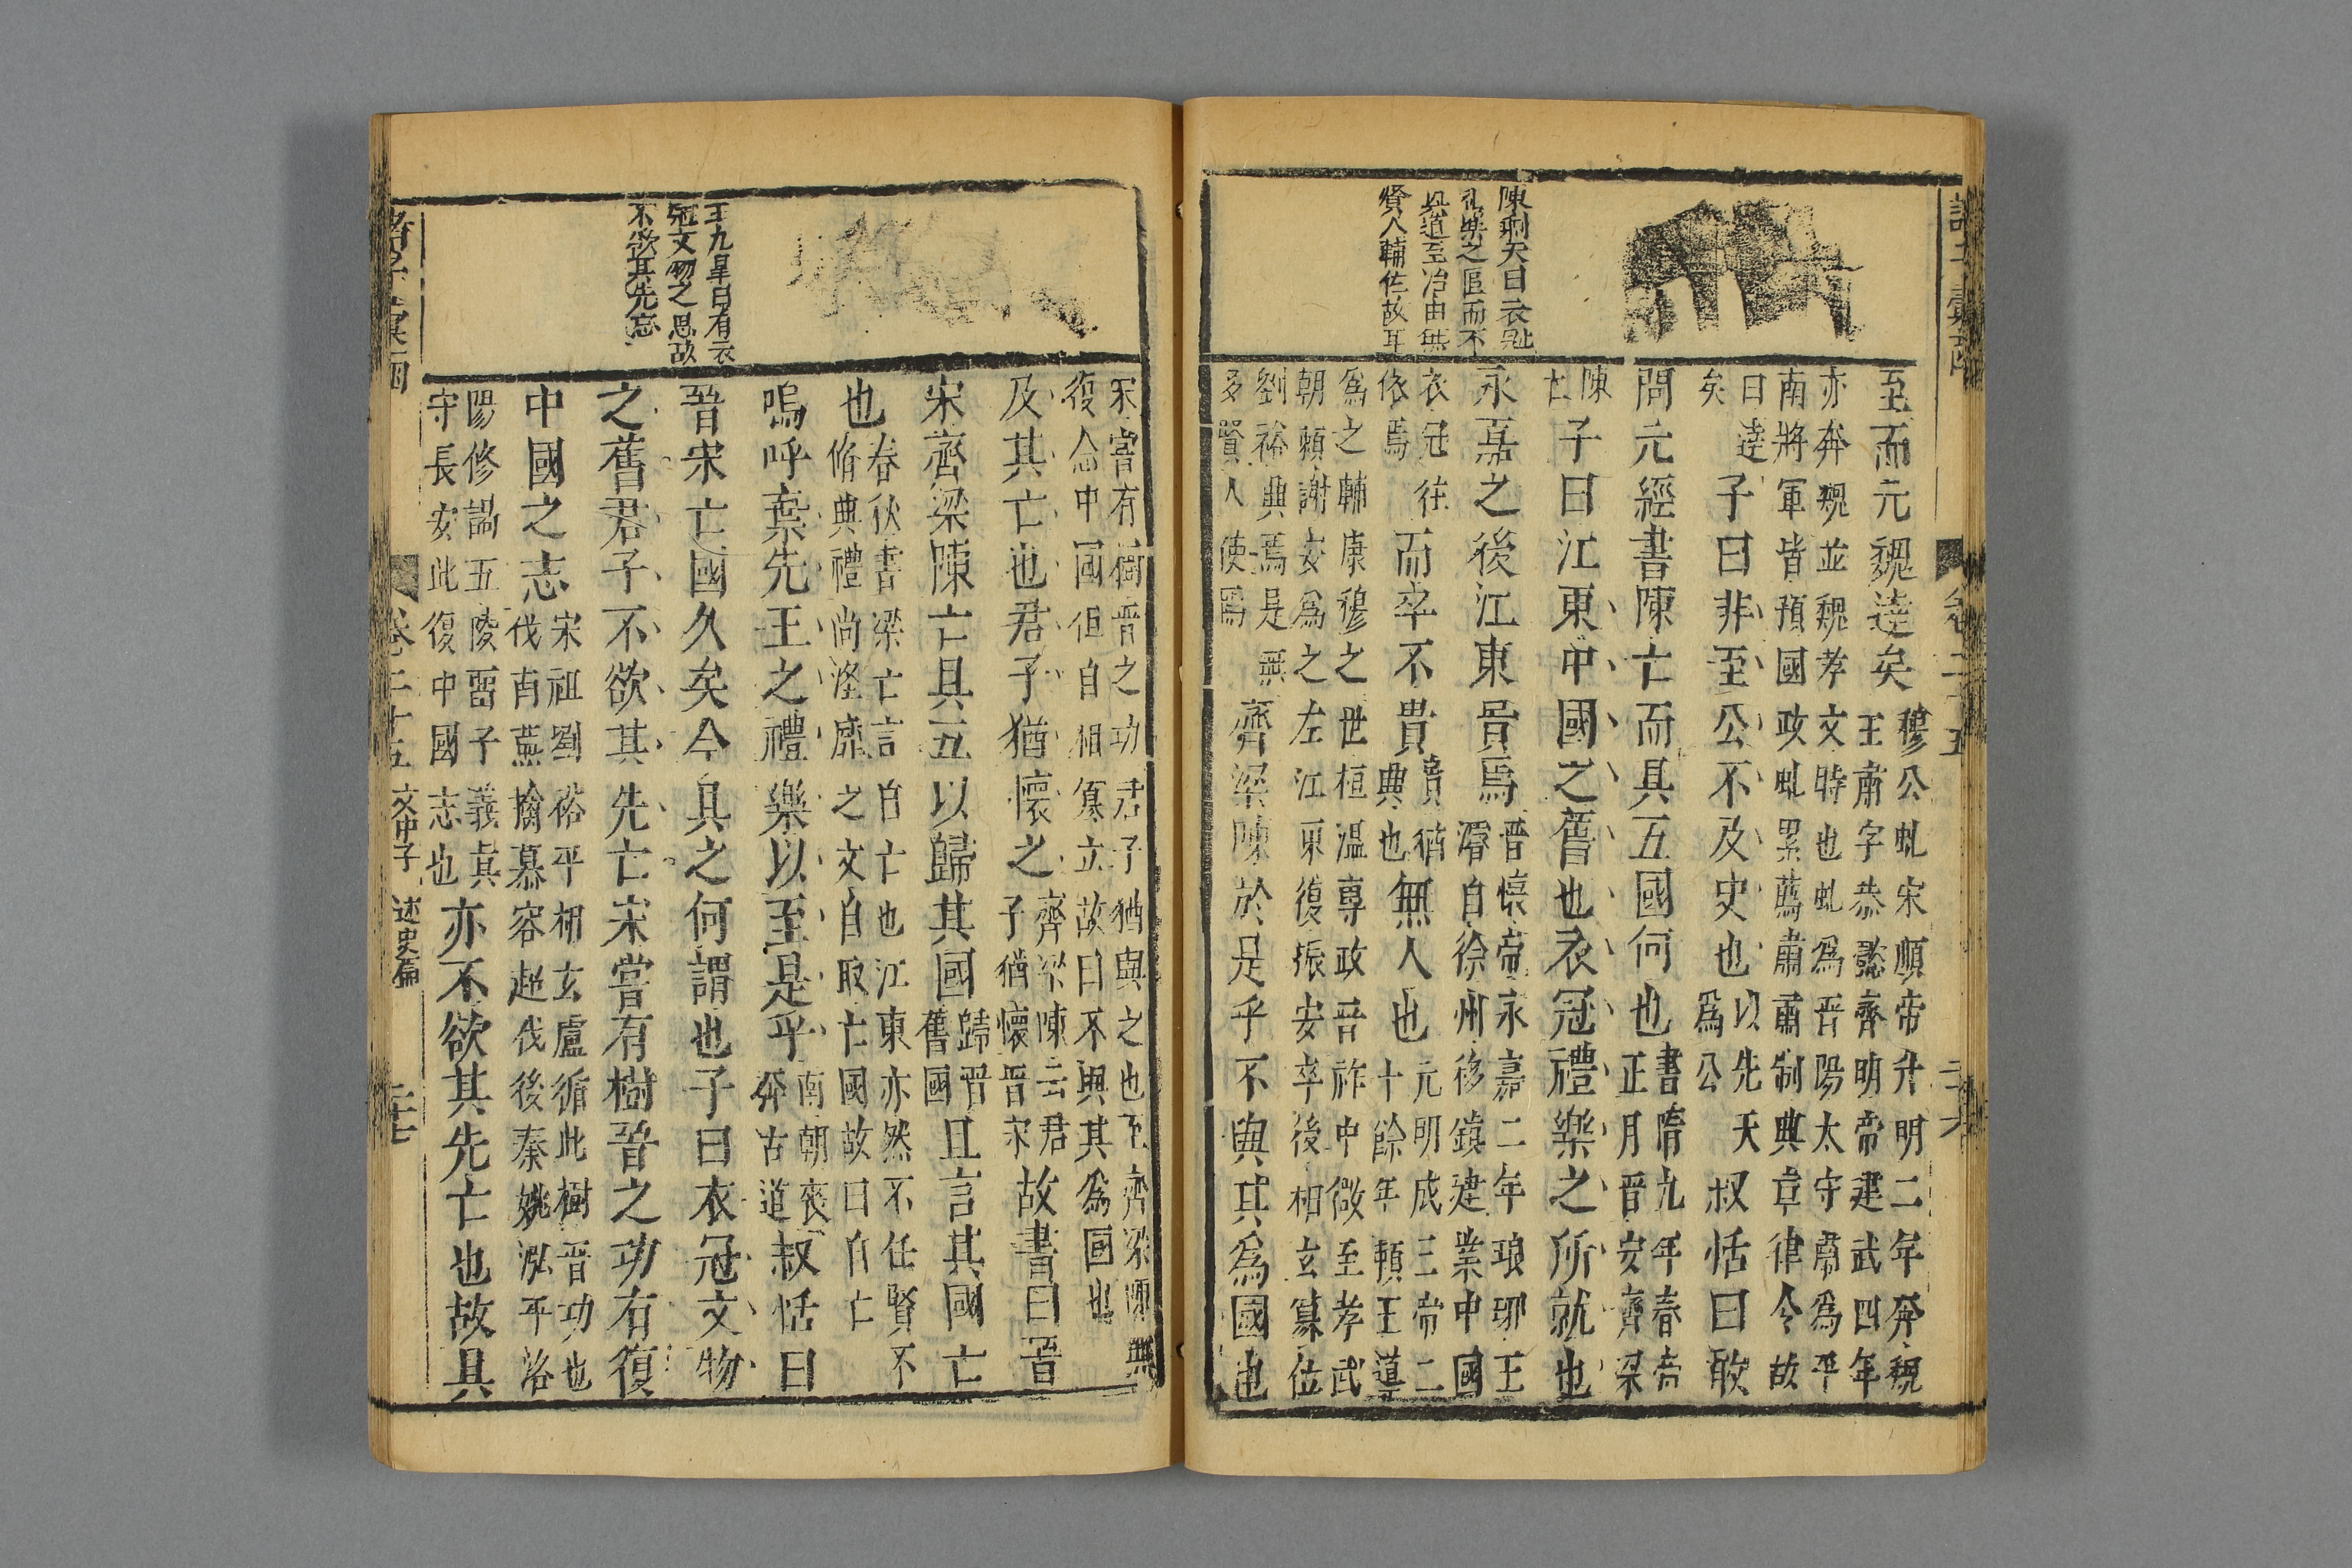 陳剩夫曰衣冠
禮樂之區而不
與道至治由無
賢人輔佐故耳
至而元魏逹矣穆公虬宋順帝升明二年奔魏
王肅字恭懿齊明帝建武四年
亦奔魏並魏孝文時也虬為晉陽太守肅為平
南將軍皆預國政虬累薦肅肅制典章律令故
曰逹
矣
子曰非至公不及史也以先天
為公
叔恬曰敢
問元經書陳亡而具五國何也書隋九年春帝
正月晉宋齊梁
陳
亡
子曰江東中國之舊也衣冠禮樂之所就也
永嘉之後江東貴焉晉懷帝永嘉二年琅琊王
濬自徐州移鎮建業中國
衣冠往
依焉
而卒不貴貴猶
典也
無人也元明成三帝二
十餘年頼王導
為之輔康穆之世桓溫專政晉祚中微至孝武
朝頼謝安為之左江東復振安卒後相玄篡位
劉裕典焉是無
多賢人使焉
齊梁陳於是乎不與其為國也
宋嘗有樹晉之功君子猶與之也至齊梁陳無
復念中國但自相篡立故曰不與其為國也
及其亡也君子猶懷之齊梁陳云君
子猶懷晉宋
故書曰晉
宋齊梁陳亡具五以歸其國歸晉
舊國
且言其國亡
也春秋書梁亡言自亡也江東亦然不任賢不
脩典禮尚淫靡之文自取亡國故曰自亡
嗚呼棄先王之禮樂以至是乎南朝喪
弊古道
叔恬曰
晉宋亡國久矣今具之何謂也子曰衣冠文物
之舊君子不欲其先亡宋嘗有樹晉之功有復
中國之志宋祖劉裕平相玄盧循此樹晉功也
伐南燕擒慕容超伐後秦姚泓平洛
陽修謁五陵畱子義真
守長安此復中國志也
亦不欲其先亡也故具
王九皐曰有衣
冠文物之思故
不欲其先亡
卷二十五
文中子
述史篇
二十七